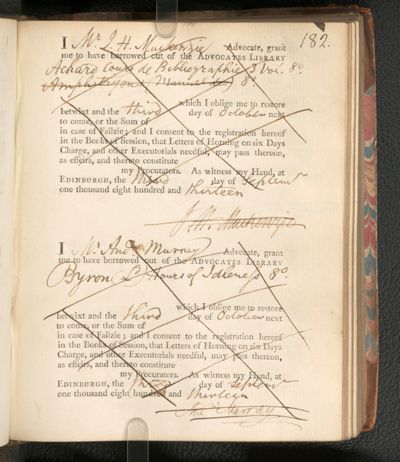 182.
I Mr J. H. Mackenzie Advocate, grant
me to have borrowed out of the ADVOCATES LIBRARY
Achard Cours de Bibliographie 3 Vol. 8º
Manuel 8º
betwixt and the third which I oblige me to restore
day of October next
to come, or the Sum of
in case of Failzie; and I consent to the registration hereof
in the Books of Session, that Letters of Horning on six Days
Charge, and other Executorials needful, may pass thereon,
as effeirs, and thereto constitute
my Procurators. As witness my Hand, at
EDINBURGH, the third day of Septemr
one thousand eight hundred and thirteen
J. H. Mackenzie
I Mr Andw Murray Advocate, grant
me to have borrowed out of the ADVOCATES LIBRARY
Byron (Ld) Hours of Idleness 8º.
which I oblige me to restore
betwixt and the third day of October next
to come, or the Sum of
in case of Failzie; and I consent to the registration hereof
in the Books of Session, that Letters of Horning on six Days
Charge, and other Executorials needful, may pass thereon,
as effeirs, and thereto constitute
my Procurators. As witness my Hand, at
EDINBURGH, the third day of Septemr
one thousand eight hundred and thirteen
Andw Murray